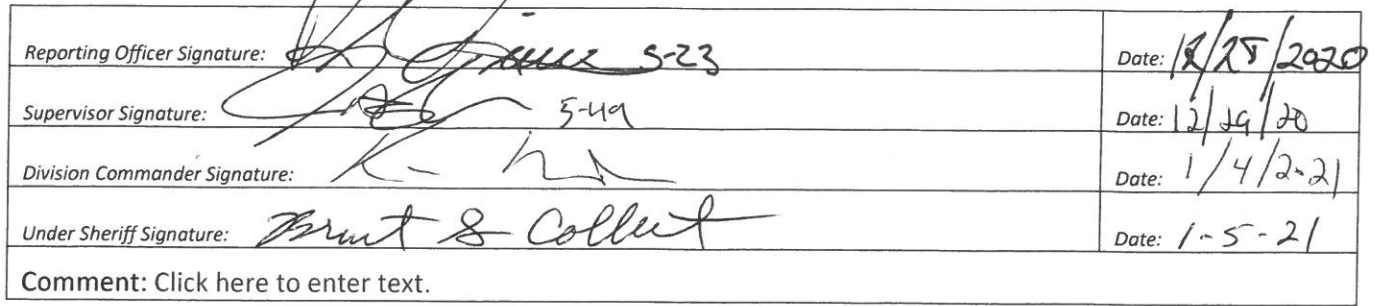 Reporting Officer Signature: S-23 Date: 12/28/2020
Supervisor Signature: S-49 Date: 12/29/20
Division Commander Signature: Date: 1/4/2021
Under Sheriff Signature: Date: 1-5-21
Comment: Click here to enter text.